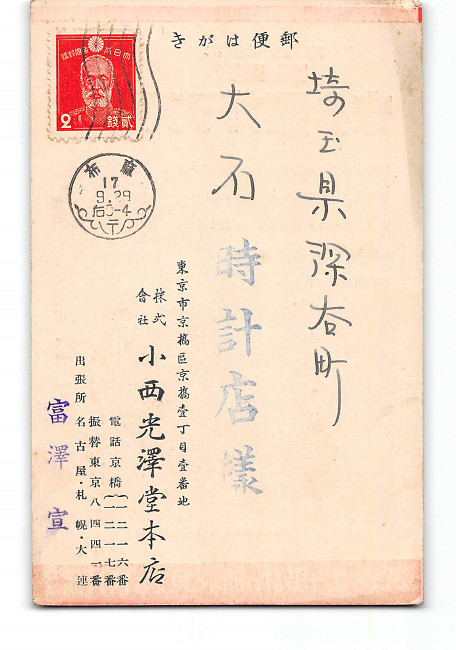 きがは便郵
埼玉県深谷町
大石時計店様
東京市京橋區京橋壹丁目壹番地
株式
會社
小西光澤堂本店
電話京橋
(一二一六番
一二一七番
振替東京八四四一番
出張所 名古屋・札幌・大連
富澤宣
2
貳錢
麻布
17
9.29
后0-4